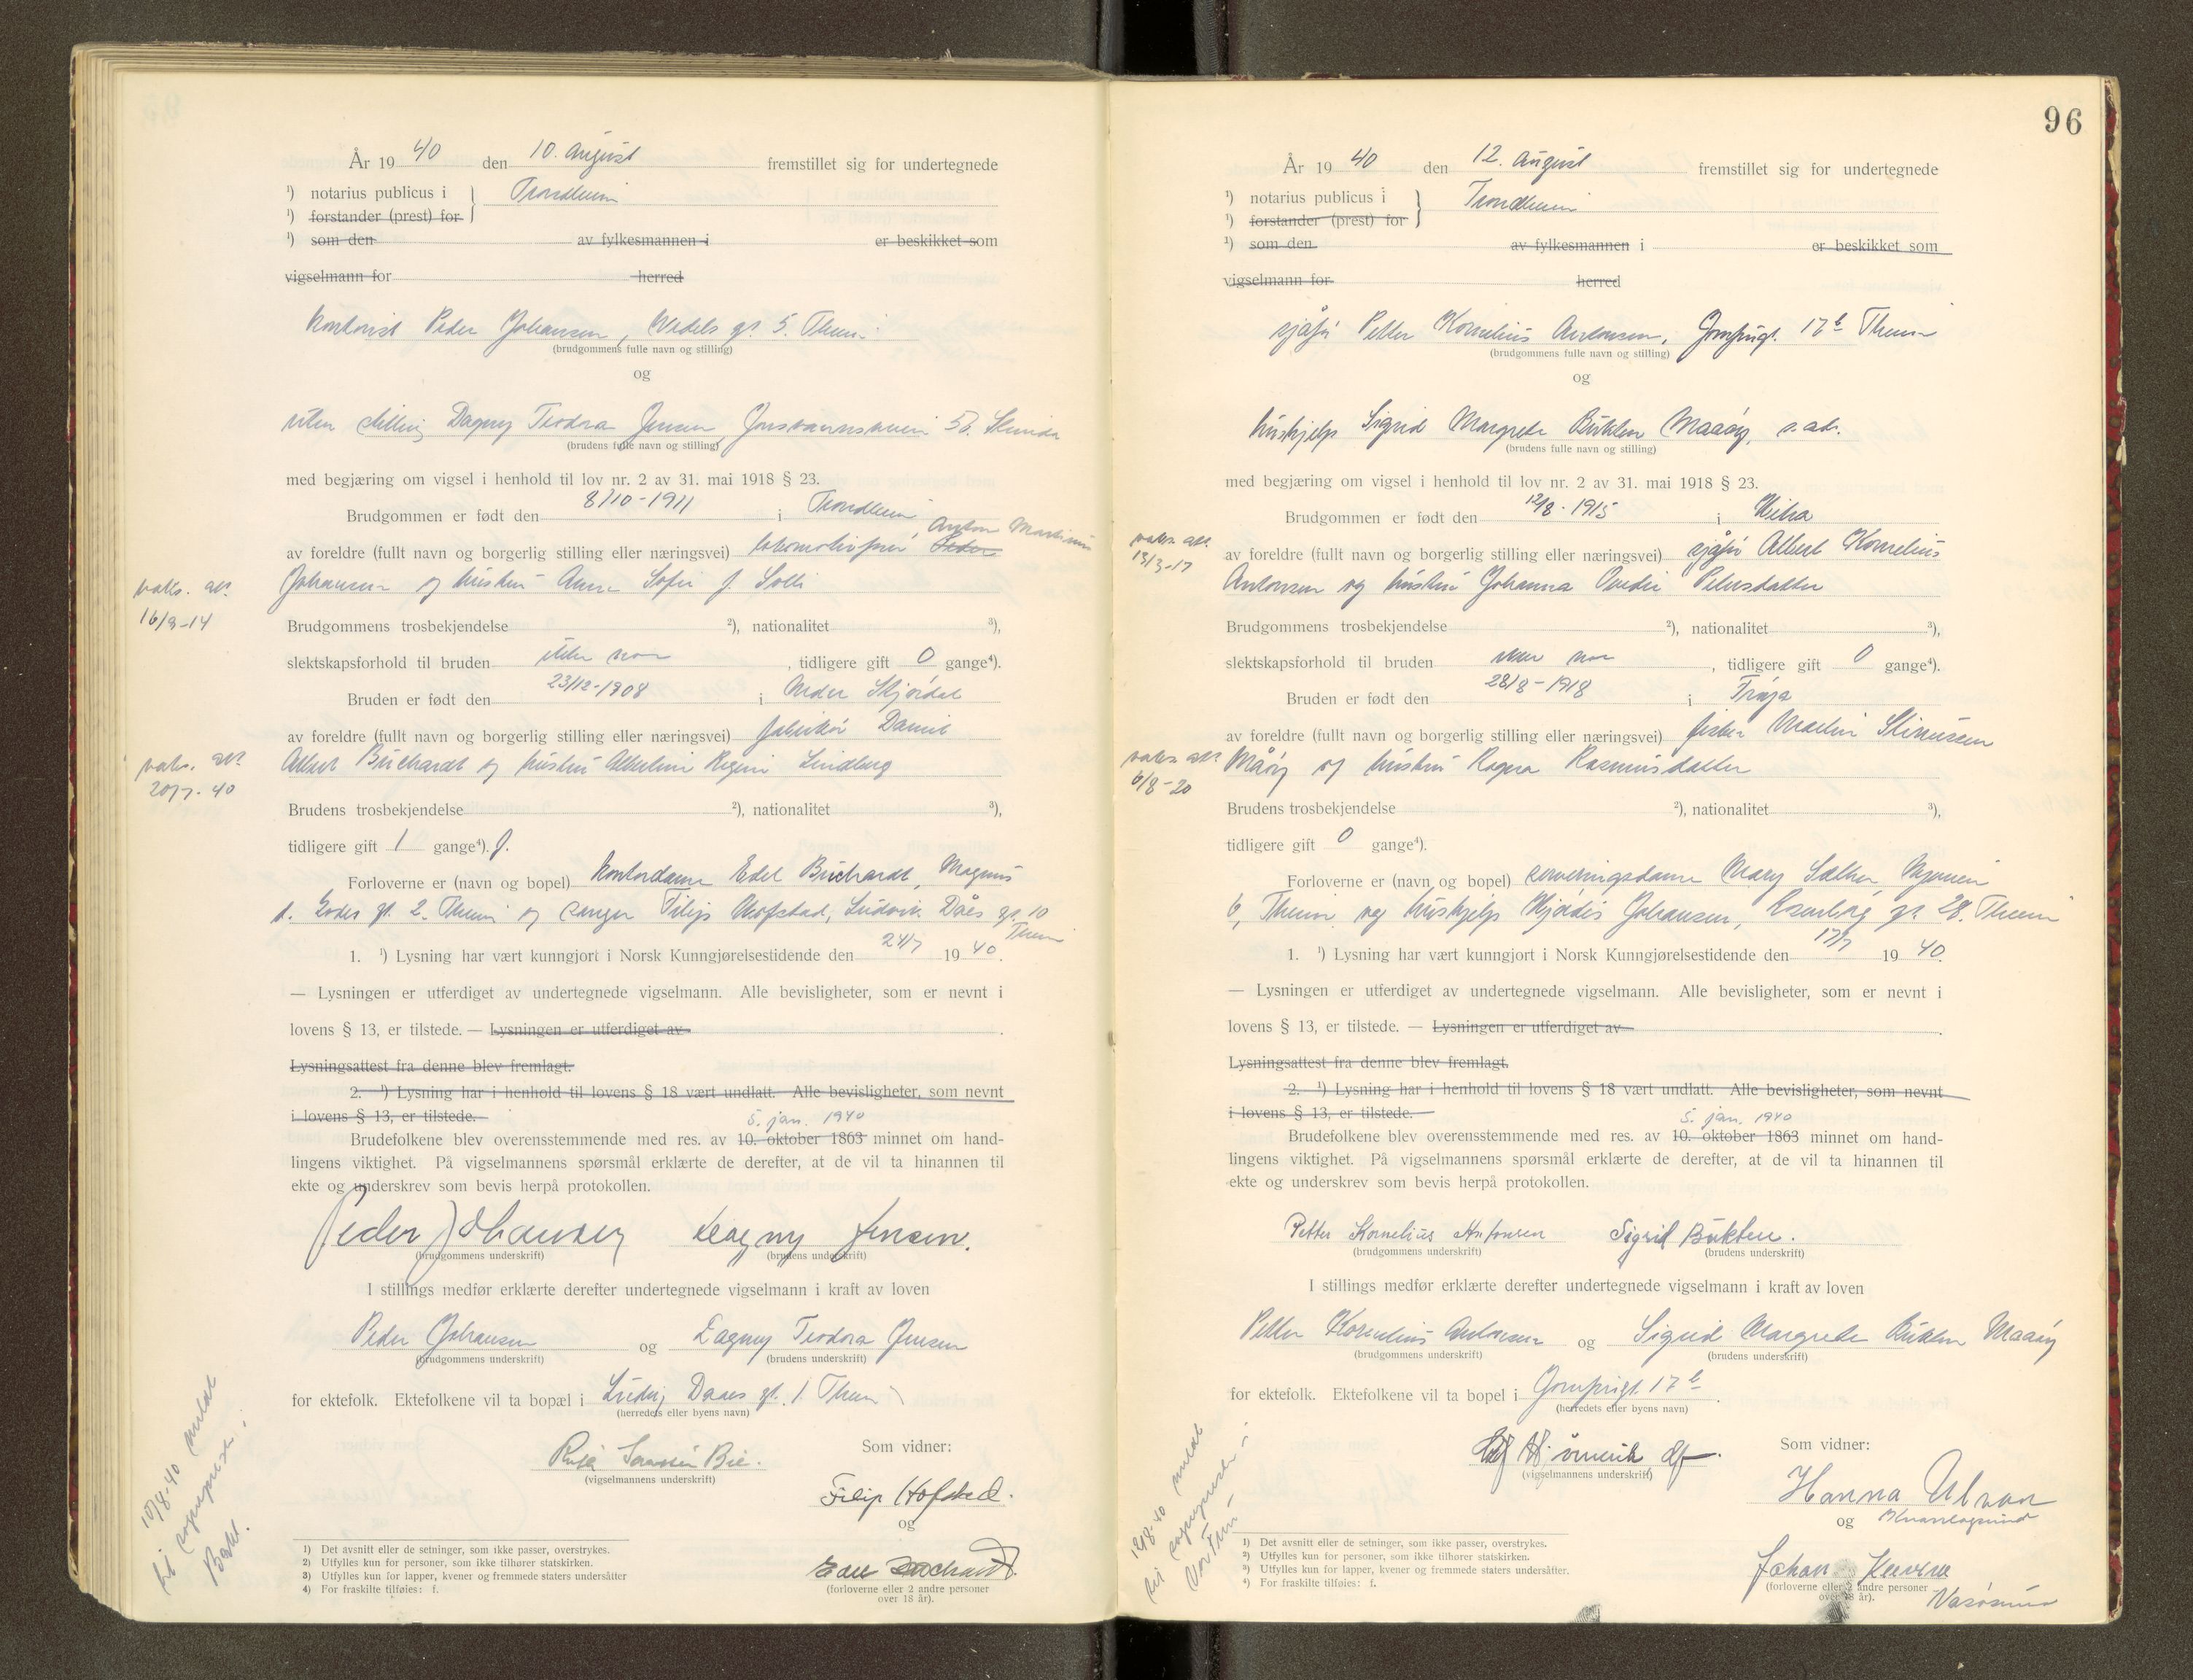 År 19 40 den 10. August fremstillet sig for undertegnede
¹) notarius publicus i } Trondheim
¹) forstander (prest) for
¹) som den av fylkesmannen i er beskikket som
vigselmann for herred
Kontorist Peder Johansen, Wedels gt. 5. Theim
(brudgommens fulle navn og stilling)
og
uten stilling Dagny Teodora Jensen, Jonsvannsveien 53. Strinda
(brudens fulle navn og stilling)
med begjæring om vigsel i henhold til lov nr. 2 av 31. mai 1918 § 23.
Brudgommen er født den 8/10-1911 i Trondheim
av foreldre (fullt navn og borgerlig stilling eller næringsvei) lokomotivfører Peder Anton Martinius
Johansen og hustru Anna Sofie f. Solli
vaks. att.
16/9-14
Brudgommens trosbekjendelse ²), nationalitet ³),
slektskapsforhold til bruden uten nær , tidligere gift 0 gange⁴).
Bruden er født den 23/12-1908 i Nedre Stjørdal
av foreldre (fullt navn og borgerlig stilling eller næringsvei) fabrikør Daniel
Albert Buchardt og hustru Regine Lindberg
vaks. att.
20/7-40
Brudens trosbekjendelse ²), nationalitet ³),
tidligere gift 1 gange⁴). f.
Forloverne er (navn og bopel) Kontordame Edel Buchardt, Magnus
d. Godes gt. 2. Theim og sanger Filip Hofstad, Ludvik Dåes gt. 10
Theim
1. ¹) Lysning har vært kunngjort i Norsk Kunngjørelsestidende den 24/7 19 40.
— Lysningen er utferdiget av undertegnede vigselmann. Alle bevisligheter, som er nevnt i
lovens § 13, er tilstede. — Lysningen er utferdiget av .
Lysningsattest fra denne blev fremlagt.
2. ¹) Lysning har i henhold til lovens § 18 vært undlatt. Alle bevisligheter, som nevnt
i lovens § 13, er tilstede.
5. jan. 1940
Brudefolkene blev overensstemmende med res. av 10. oktober 1863 minnet om hand-
lingens viktighet. På vigselmannens spørsmål erklærte de derefter, at de vil ta hinannen til
ekte og underskrev som bevis herpå protokollen.
Peder Johansen Dagny Jensen.
(brudgommens underskrift) (brudens underskrift)
I stillings medfør erklærte derefter undertegnede vigselmann i kraft av loven
Peder Johansen og Dagny Teodora Jensen
(brudgommens underskrift) (brudens underskrift)
for ektefolk. Ektefolkene vil ta bopæl i Ludvig Daaes gt. 1 Theim
(herredets eller byens navn)
(vigselmannens underskrift)
Som vidner:
Filip Hofstad.
og
Edel Buchardt
(forloverne eller 2 andre personer
over 18 år).
10/8-40 meldt
til sogneprest i
Bakl.
¹) Det avsnitt eller de setninger, som ikke passer, overstrykes.
²) Utfylles kun for personer, som ikke tilhører statskirken.
³) Utfylles kun for lapper, kvener og fremmede staters undersåtter
⁴) For fraskilte tilføies: f.
96
År 19 40 den 12. August fremstillet sig for undertegnede
¹) notarius publicus i } Trondheim
¹) forstander (prest) for
¹) som den av fylkesmannen i er beskikket som
vigselmann for herred
sjåfør Petter Kornelius Antonsen, Jomfrugt. 17b Theim
(brudgommens fulle navn og stilling)
og
hushjelp Sigrid Margrete Bukten Maaøy, s. ad.
(brudens fulle navn og stilling)
med begjæring om vigsel i henhold til lov nr. 2 av 31. mai 1918 § 23.
Brudgommen er født den 12/8-1915 i Hitra
av foreldre (fullt navn og borgerlig stilling eller næringsvei) sjåfør Albert Kornelius
Antonsen og hustru Johanna Ovedie Petersdatter
vaks. att.
13/3-17
Brudgommens trosbekjendelse ²), nationalitet ³),
slektskapsforhold til bruden uten nær , tidligere gift 0 gange⁴).
Bruden er født den 28/8-1918 i Frøya
av foreldre (fullt navn og borgerlig stilling eller næringsvei) fisker
Måøy og hustru Ragna Rasmusdatter
vaks. att.
6/8-20
Brudens trosbekjendelse ²), nationalitet ³),
tidligere gift 0 gange⁴).
Forloverne er (navn og bopel) serveringsdame Mary Sæther,
6, Theim og hushjelp Hjørdis Johansen, Rosenborg gt. 28. Theim
1. ¹) Lysning har vært kunngjort i Norsk Kunngjørelsestidende den 17/7 19 40.
— Lysningen er utferdiget av undertegnede vigselmann. Alle bevisligheter, som er nevnt i
lovens § 13, er tilstede. — Lysningen er utferdiget av .
Lysningsattest fra denne blev fremlagt.
2. ¹) Lysning har i henhold til lovens § 18 vært undlatt. Alle bevisligheter, som nevnt
i lovens § 13, er tilstede.
5. jan. 1940
Brudefolkene blev overensstemmende med res. av 10. oktober 1863 minnet om hand-
lingens viktighet. På vigselmannens spørsmål erklærte de derefter, at de vil ta hinannen til
ekte og underskrev som bevis herpå protokollen.
Petter Kornelius Antonsen Sigrid Bukten.
(brudgommens underskrift) (brudens underskrift)
I stillings medfør erklærte derefter undertegnede vigselmann i kraft av loven
Petter Kornelius Antonsen og Sigrid Margrete Bukten Maaøy
(brudgommens underskrift) (brudens underskrift)
for ektefolk. Ektefolkene vil ta bopel i Jomfrugt. 17b.
(herredets eller byens navn)
(vigselmannens underskrift)
Som vidner:
Hanna Ulvan
og
Johan
(forloverne eller 2 andre personer
over 18 år).
12/8-40 meldt
til sogneprest i
Vor Frue
¹) Det avsnitt eller de setninger, som ikke passer, overstrykes.
²) Utfylles kun for personer, som ikke tilhører statskirken.
³) Utfylles kun for lapper, kvener og fremmede staters undersåtter.
⁴) For fraskilte tilføies: f.